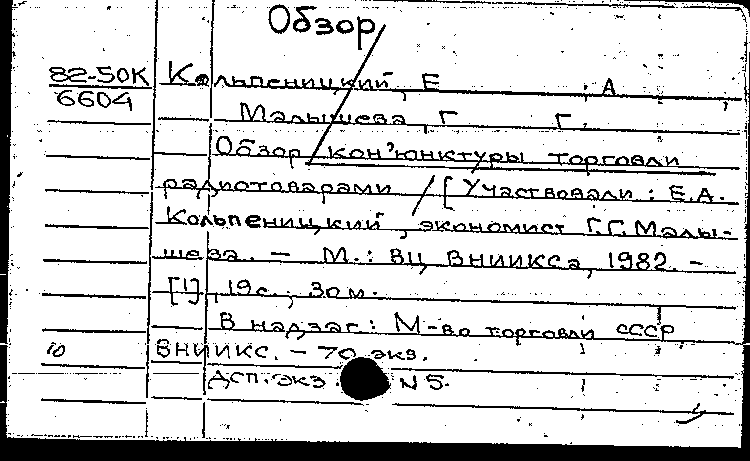 Обзор
82-50К Кольпеницкий, Е. А.
6604
Малышева, Г. Г.
Обзор кон'юнктуры торговли
радиотоварами / [Участвовали: Е.А.
Кольпеницкий, экономист Г.Г. Малы-
шева. — М.: ВЦ ВНИИКСа, 1982. -
[1], 19 с.; 30 м.
В надзаг: М-во торговли СССР,
10 ВНИИКС. – 70 экз.
ДСП. экз. N 5.